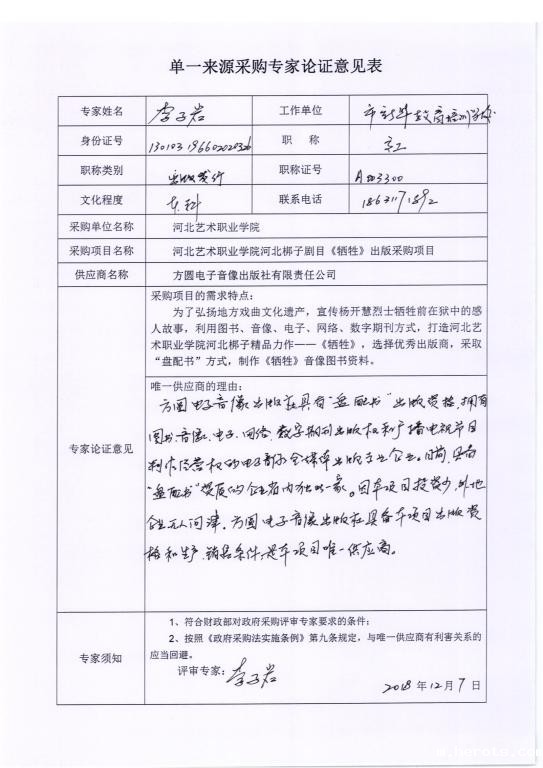 单一来源采购专家论证意见表
专家姓名 李子岩 工作单位 市新华教育培训学校
身份证号 职 称 高工
职称类别 出版发行 职称证号 A003300
文化程度 本科 联系电话
采购单位名称 河北艺术职业学院
采购项目名称 河北艺术职业学院河北梆子剧目《牺牲》出版采购项目
供应商名称 方圆电子音像出版社有限责任公司
专家论证意见
采购项目的需求特点：
为了弘扬地方戏曲文化遗产，宣传杨开慧烈士牺牲前在狱中的感
人故事，利用图书、音像、电子、网络、数字期刊方式，打造河北艺
术职业学院河北梆子精品力作——《牺牲》，选择优秀出版商，采取
“盘配书”方式，制作《牺牲》音像图书资料。
唯一供应商的理由：
方圆电子音像出版社具有“盘配书”出版资格，拥有
图书、音像、电子、网络、数字期刊出版权和广播电视节目
制作经营权的电子部全媒体出版专业企业。目前，具有
“盘配书”资质的企业省内独此一家。因本项目投资少，外地
企业无人问津。方圆电子音像出版社具备本项目出版资
格和生产、销售条件，是本项目唯一供应商。
专家须知
1、符合财政部对政府采购评审专家要求的条件；
2、按照《政府采购法实施条例》第九条规定，与唯一供应商有利害关系的
应当回避。
评审专家：李子岩
2018 年 12 月 7 日